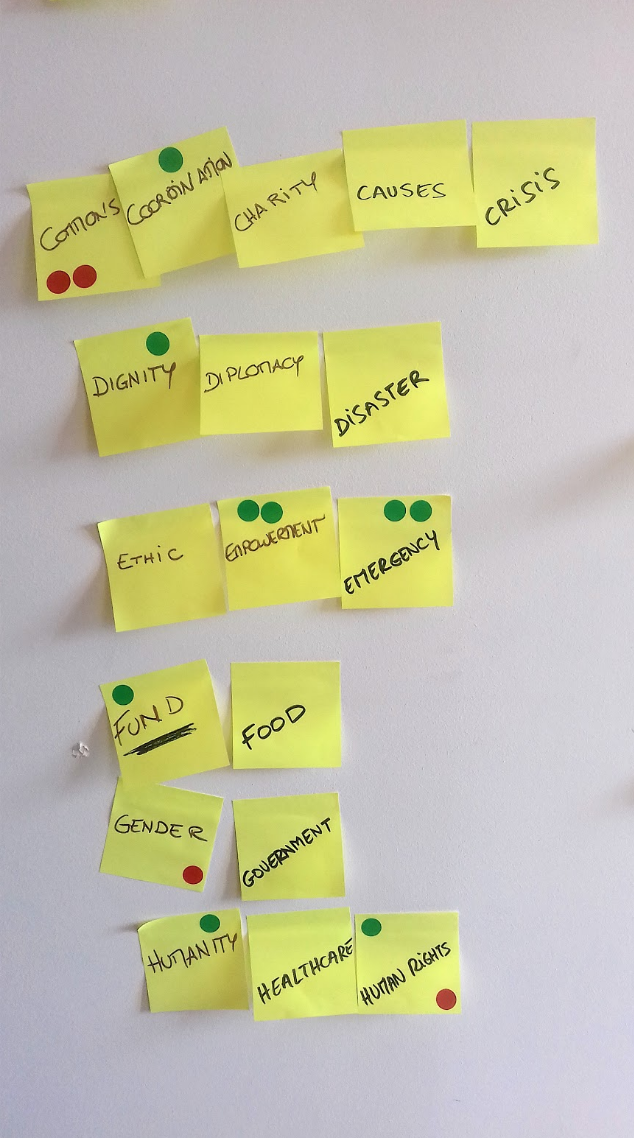 COMMONS
COORDINATION
CHARITY
CAUSES
CRISIS
DIGNITY
DIPLOMACY
DISASTER
ETHIC
EMPOWERMENT
EMERGENCY
FUND
FOOD
GENDER
GOVERNMENT
HUMANITY
HEALTHCARE
HUMAN RIGHTS